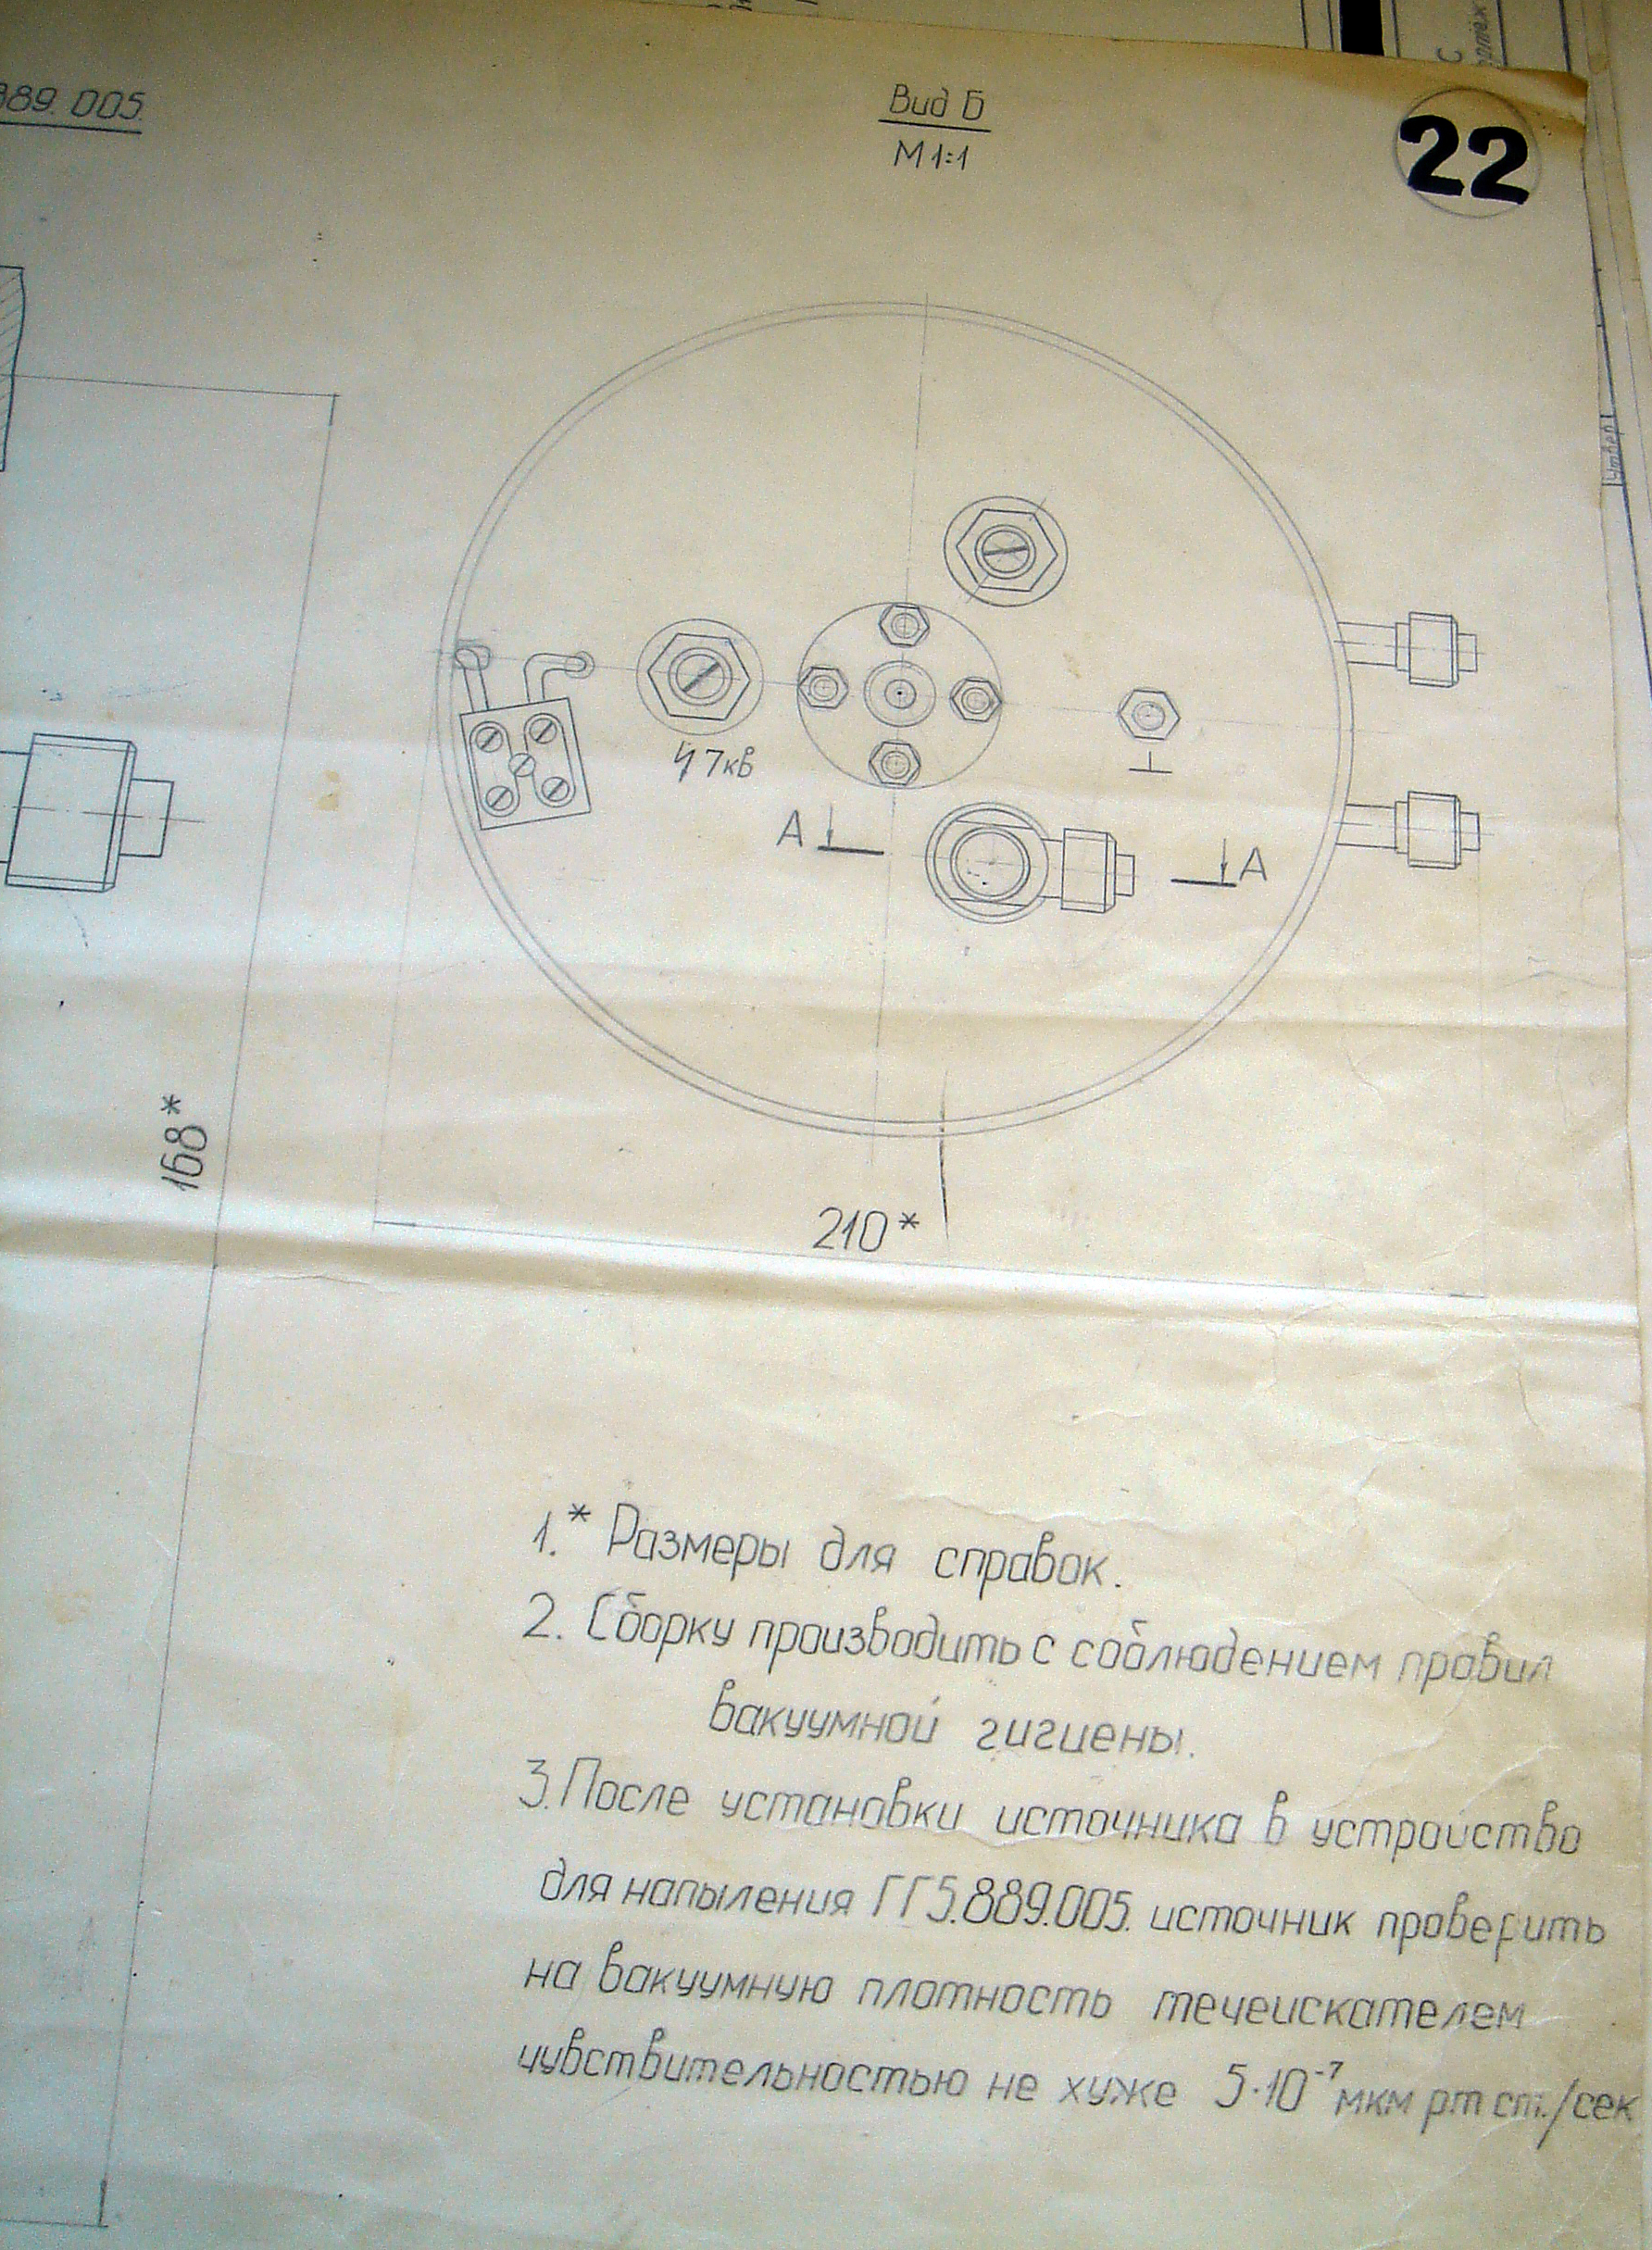 889.005.
Вид Б
М 1:1
22
Утверд
7кв
А
А
168*
210*
1.* Размеры для справок.
2. Сборку производить с соблюдением правил
вакуумной гигиены.
3. После установки источника в устроиство
для напыления ГГ5.889.005. источник проверить
на вакуумную плотность течеискателем
чувствительностью не хуже 5·10⁻⁷ мкм рт ст./сек